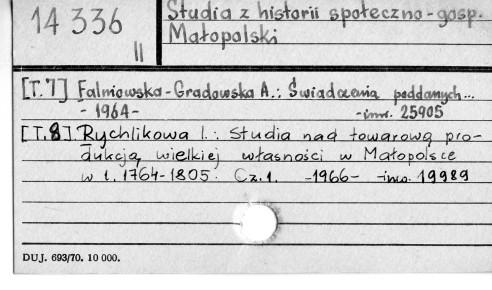 14 336
II
Studia z historii społeczno-gosp.
Małopolski
[T.7] Falniowska-Gradowska A.: Świadczenia poddanych...
- 1964- -inw. 25905
[T.8] Rychlikowa I.: Studia nad towarową pro-
dukcją wielkiej własności w Małopolsce
w l. 1764-1805. Cz.1. -1966- -inw. 19989
DUJ. 693/70. 10 000.